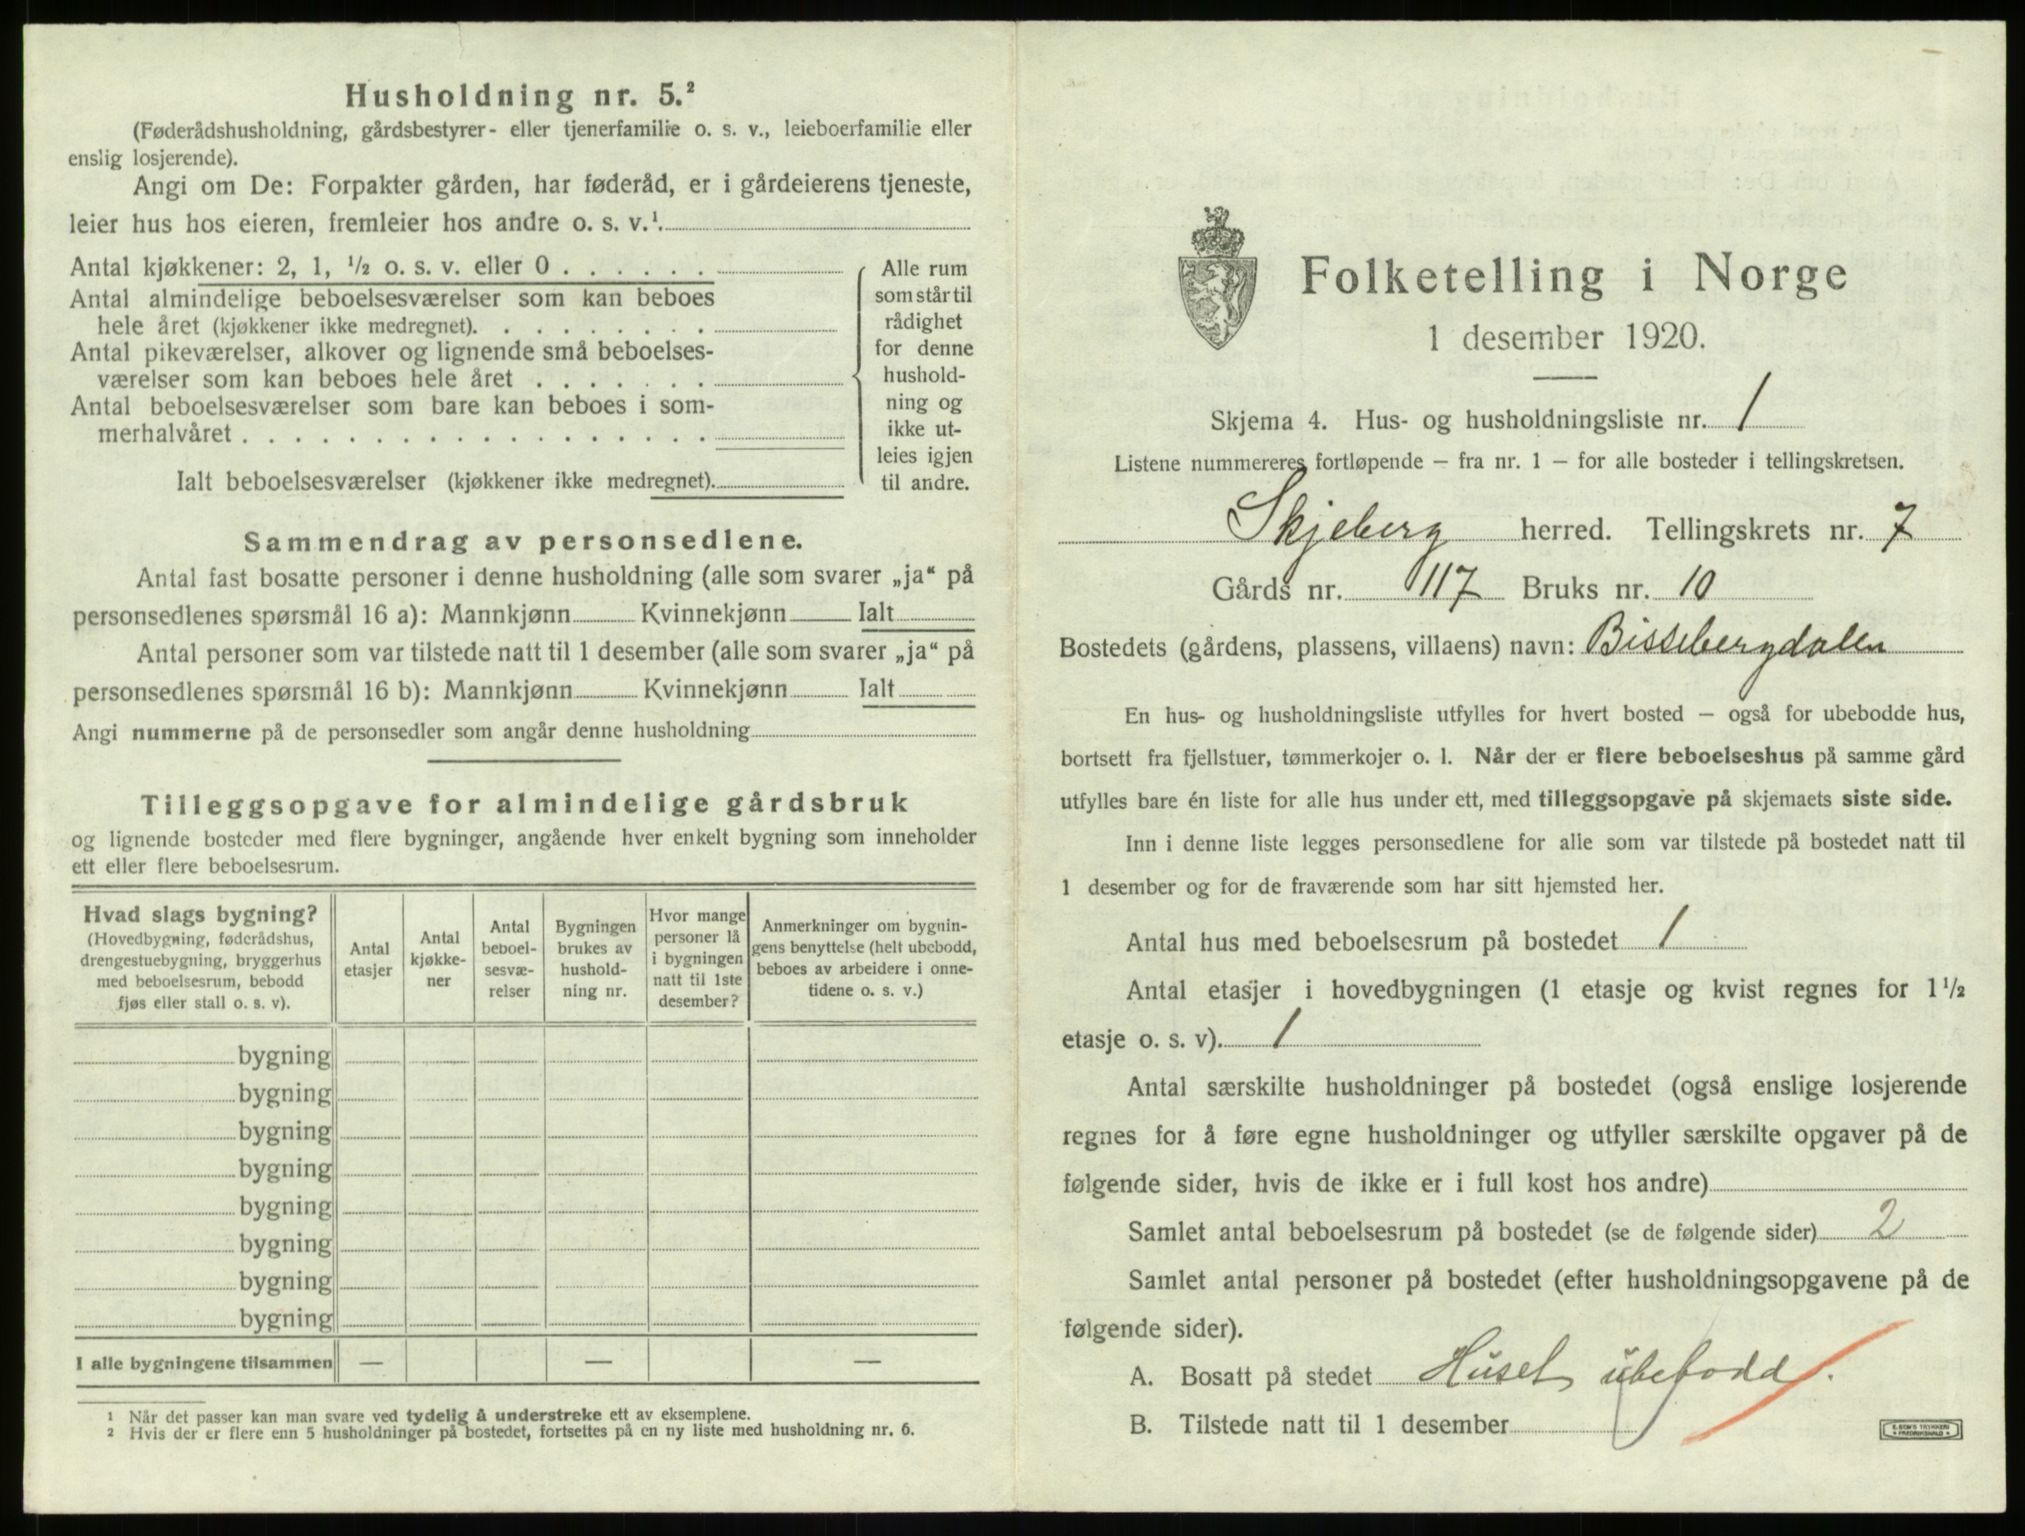 Husholdning nr. 5.²
(Føderådshusholdning, gårdsbestyrer- eller tjenerfamilie o. s. v., leieboerfamilie eller
enslig losjerende).
Angi om De: Forpakter gården, har føderåd, er i gårdeierens tjeneste,
leier hus hos eieren, fremleier hos andre o. s. v.¹.
Antal kjøkkener: 2, 1, ½ o. s. v. eller 0 . . . . . .
Antal almindelige beboelsesværelser som kan beboes
hele året (kjøkkener ikke medregnet). . . . . . . . .
Antal pikeværelser, alkover og lignende små beboelses-
værelser som kan beboes hele året . . . . . . .
Antal beboelsesværelser som bare kan beboes i som-
merhalvåret . . . . . . . . . . . . . . . . . .
Ialt beboelsesværelser (kjøkkener ikke medregnet).
Alle rum
som står til
rådighet
for denne
hushold-
ning og
ikke ut-
leies igjen
til andre.
Sammendrag av personsedlene.
Antal fast bosatte personer i denne husholdning (alle som svarer „ja“ på
personsedlenes spørsmål 16 a): Mannkjønn Kvinnekjønn Ialt
Antal personer som var tilstede natt til 1 desember (alle som svarer „ja“ på
personsedlenes spørsmål 16 b): Mannkjønn Kvinnekjønn Ialt
Angi nummerne på de personsedler som angår denne husholdning
Tilleggsopgave for almindelige gårdsbruk
og lignende bosteder med flere bygninger, angående hver enkelt bygning som inneholder
ett eller flere beboelsesrum.
Hvad slags bygning?
(Hovedbygning, føderådshus,
drengestuebygning, bryggerhus
med beboelsesrum, bebodd
fjøs eller stall o. s. v).
Antal
etasjer
Antal
kjøkke-
ner
Antal
beboel-
sesvæ-
relser
Bygningen
brukes av
hushold-
ning nr.
Hvor mange
personer lå
i bygningen
natt til 1ste
desember?
Anmerkninger om bygnin-
gens benyttelse (helt ubebodd,
beboes av arbeidere i onne-
tidene o. s. v.)
bygning
bygning
bygning
bygning
bygning
bygning
bygning
bygning
I alle bygningene tilsammen — — —
1 Når det passer kan man svare ved tydelig å understreke ett av eksemplene.
2 Hvis der er flere enn 5 husholdninger på bostedet, fortsettes på en ny liste med husholdning nr. 6.
Folketelling i Norge
1 desember 1920.
Skjema 4. Hus- og husholdningsliste nr. 1
Listene nummereres fortløpende – fra nr. 1 – for alle bosteder i tellingskretsen.
Skjeberg herred. Tellingskrets nr. 7
Gårds nr. 117 Bruks nr. 10
Bostedets (gårdens, plassens, villaens) navn: Bissebergdalen
En hus- og husholdningsliste utfylles for hvert bosted – også for ubebodde hus,
bortsett fra fjellstuer, tømmerkojer o. l. Når der er flere beboelseshus på samme gård
utfylles bare én liste for alle hus under ett, med tilleggsopgave på skjemaets siste side.
Inn i denne liste legges personsedlene for alle som var tilstede på bostedet natt til
1 desember og for de fraværende som har sitt hjemsted her.
Antal hus med beboelsesrum på bostedet 1
Antal etasjer i hovedbygningen (1 etasje og kvist regnes for 1½
etasje o. s. v). 1
Antal særskilte husholdninger på bostedet (også enslige losjerende
regnes for å føre egne husholdninger og utfyller særskilte opgaver på de
følgende sider, hvis de ikke er i full kost hos andre)
Samlet antal beboelsesrum på bostedet (se de følgende sider) 2
Samlet antal personer på bostedet (efter husholdningsopgavene på de
følgende sider).
A. Bosatt på stedet Huset ubebodd.
B. Tilstede natt til 1 desember